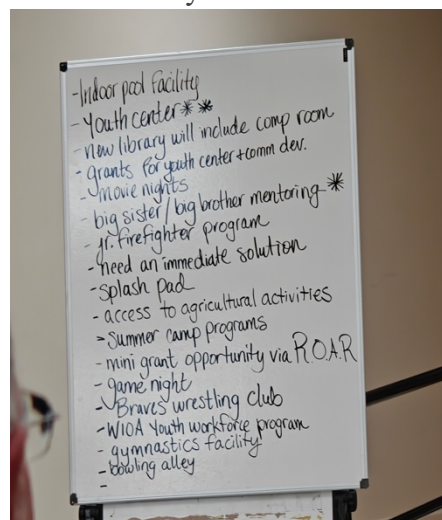 -Indoor pool Facility
- Youth center**
- new library will include comp room
- grants for youth center+comm dev.
- movie nights
- big sister/big brother mentoring*
- jr. firefighter program
- need an immediate solution
- splash pad
- access to agricultural activities
- summer camp programs
- mini grant opportunity via R.O.A.R
- game night
- Braves wrestling club
- WIOA Youth workforce program
- gymnastics facility
- bowling alley
-